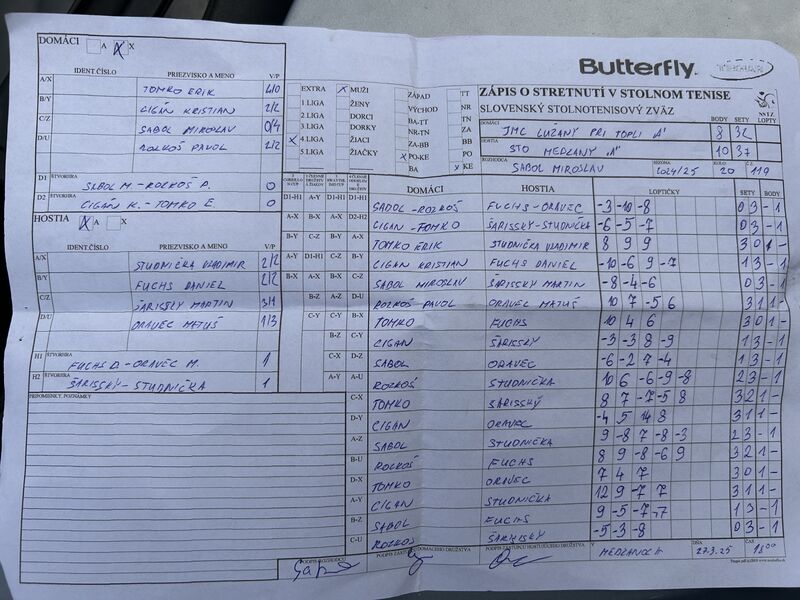 DOMÁCI A X
IDENT.ČÍSLO PRIEZVISKO A MENO V/P
A/X TOMKO ERIK 4/0
B/Y CIGÁN KRISTIAN 2/2
C/Z SABOL MIROSLAV 0/4
D/U ROZKOŠ PAVOL 2/2
D1 ŠTVORHRA SABOL M - ROZKOŠ P. 0
D2 ŠTVORHRA CIGÁN K. - TOMKO E. 0
HOSTIA A X
IDENT.ČÍSLO PRIEZVISKO A MENO V/P
A/X STUDNIČKA VLADIMIR 2/2
B/Y FUCHS DANIEL 2/2
C/Z ŠARISSKÝ MARTIN 3/1
D/U ORAVEC MATÚŠ 1/3
H1 ŠTVORHRA FUCHS D. - ORAVEC M. 1
H2 ŠTVORHRA ŠARISSKÝ - STUDNIČKA 1
PRIPOMIENKY, POZNÁMKY
EXTRA X MUŽI
1 LIGA ŽENY
2 LIGA DORCI
3 LIGA DORKY
X 4 LIGA ŽIACI
5 LIGA ŽIAČKY
ZÁPAD TT
VÝCHOD NR
BA-TT TN
NR-TN ZA
ZA-BB BB
X PO-KE PO
BA X KE
Butterfly
ZÁPIS O STRETNUTÍ V STOLNOM TENISE
SLOVENSKÝ STOLNOTENISOVÝ ZVÄZ
BODY SETY LOPTY
DOMÁCI JMC LÚŽANY PRI TOPLI "A" 8 32
HOSTIA STO MEDZANY "A" 10 37
ROZHODCA SABOL MIROSLAV SEZONA 2024/25 KOLO 20 Č.Z. 119
DOMÁCI HOSTIA LOPTIČKY SETY BODY
D1-H1 A-Y D1-H1 D1-H1 SABOL - ROZKOŠ FUCHS - ORAVEC -3 -10 -8 0 3 - 1
A-X B-X A-X D2-H2 CIGAN - TOMKO ŠARISSKÝ - STUDNIČKA -6 -5 -7 0 3 - 1
B-Y C-Z B-Y A-X TOMKO ERIK STUDNIČKA VLADIMIR 8 9 9 3 0 1 -
A-Y D1-H1 C-Z B-Y CIGAN KRISTIAN FUCHS DANIEL -10 -6 9 -7 1 3 - 1
B-X A-X B-X C-Z SABOL MIROSLAV ŠARISSKÝ MARTIN -8 -4 -6 0 3 - 1
B-Z A-Z D-U ROZKOŠ PAVOL ORAVEC MATÚŠ 10 7 -5 6 3 1 1 -
C-Y C-Y B-X TOMKO FUCHS 10 4 6 3 0 1 -
B-Z C-Y CIGAN ŠARISSKÝ -3 -3 8 -9 1 3 - 1
C-X D-Z SABOL ORAVEC -6 -2 7 -4 1 3 - 1
A-Y A-U ROZKOŠ STUDNIČKA 10 6 -6 -9 -8 2 3 - 1
C-X TOMKO ŠARISSKÝ 8 7 -7 -5 8 3 2 1 -
D-Y CIGAN ORAVEC -4 5 14 8 3 1 1 -
A-Z SABOL STUDNIČKA 9 -8 7 -8 -3 2 3 - 1
B-U ROZKOŠ FUCHS 8 9 -8 -6 9 3 2 1 -
D-X TOMKO ORAVEC 7 4 7 3 0 1 -
A-Y CIGAN STUDNIČKA 12 9 -7 7 3 1 1 -
B-Z SABOL FUCHS 9 -5 -7 -7 1 3 - 1
C-U ROZKOŠ ŠARISSKÝ -5 -3 -8 0 3 - 1
PODPIS ROZHODCU PODPIS ZÁSTUPCU DOMÁCEHO DRUŽSTVA PODPIS ZÁSTUPCU HOSTUJÚCEHO DRUŽSTVA V MEDZANOCH DŇA 27.3.25 ČAS 18:00